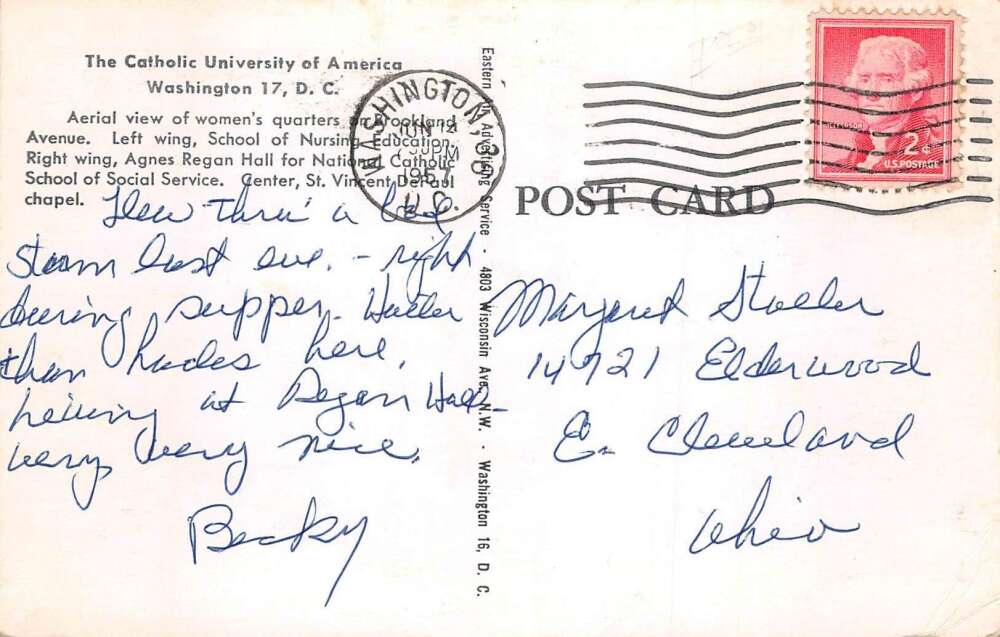 The Catholic University of America
Washington 17, D. C.
Aerial view of women's quarters on Brookland
Avenue. Left wing, School of Nursing Education.
Right wing, Agnes Regan Hall for National Catholic
School of Social Service. Center, St. Vincent DePaul
chapel.
Flew thru' a bad
storm last eve. - right
during supper. Hotter
than hades here.
Living at Regan Hall -
very, very nice.
Becky
Eastern Advertising Service · 4803 Wisconsin Ave., N.W. · Washington 16, D. C.
WASHINGTON, 36
JUN 12
PM
1957
D.C.
JEFFERSON
2¢
U.S. POSTAGE
POST CARD
Margaret
14721 Elderwood
E. Cleveland
Ohio